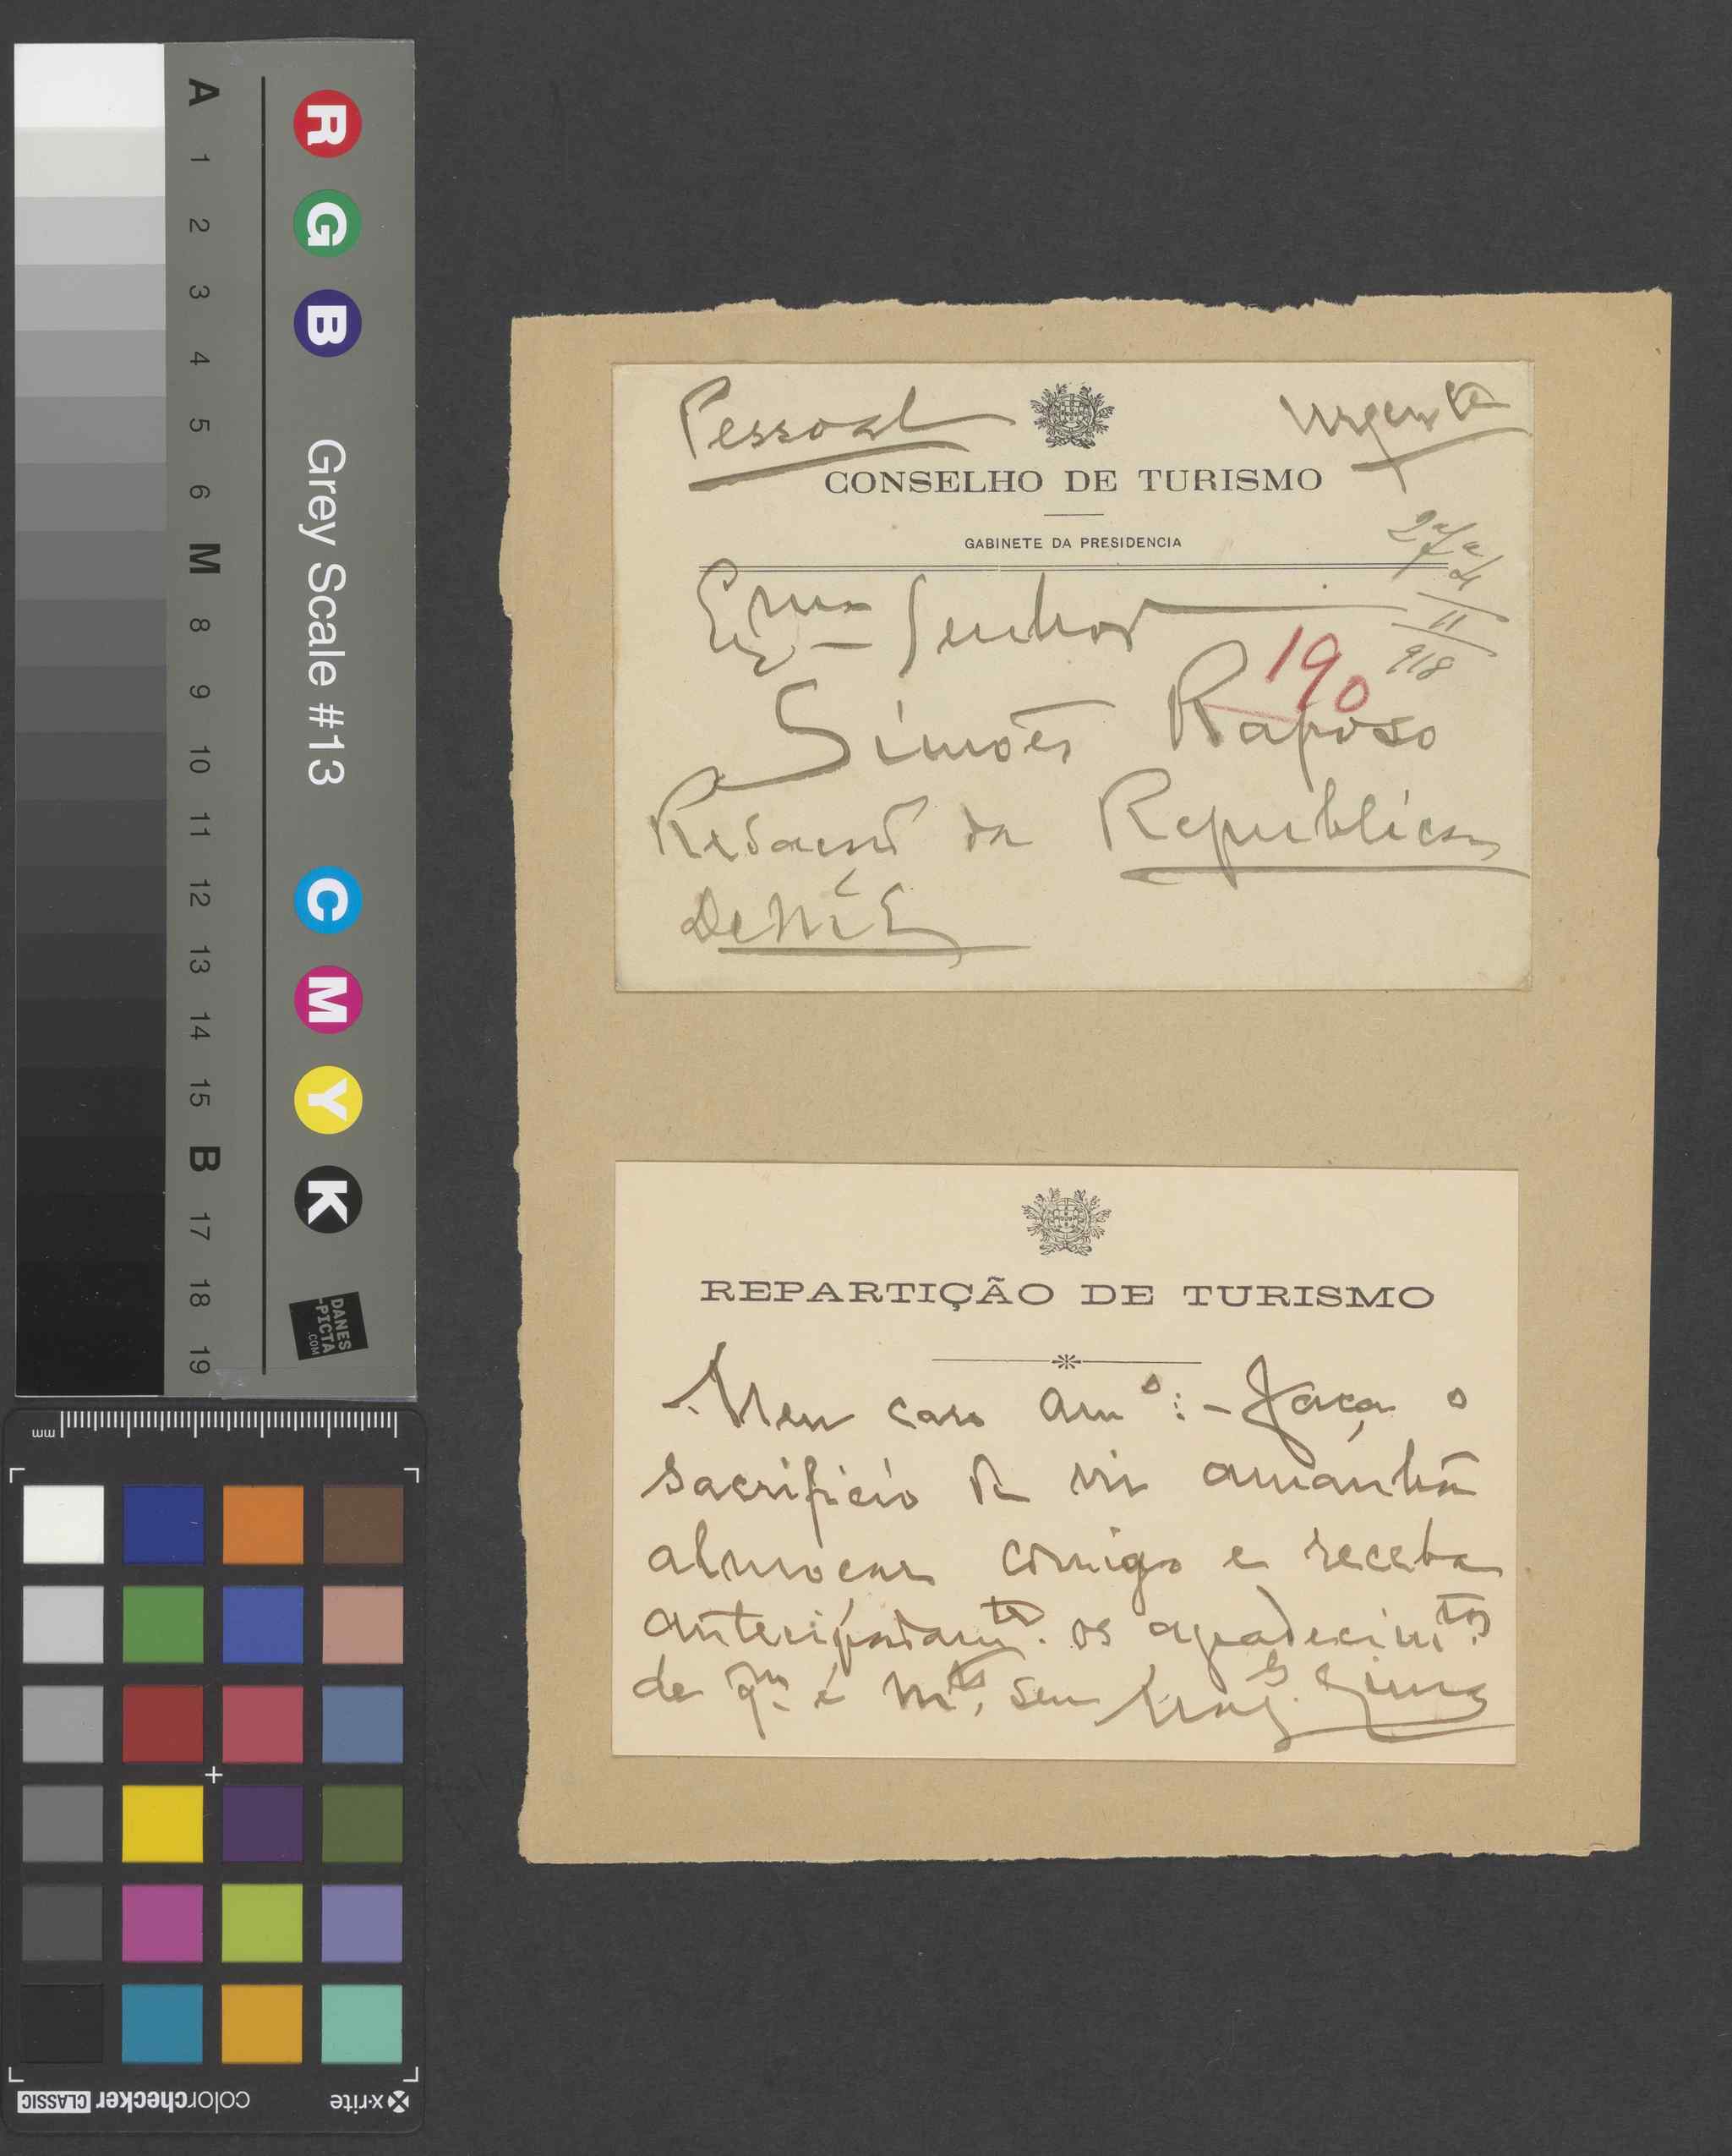 A
1
2
3
4
5
6
M
8
9
10
11
12
13
14
15
B
17
18
19
R G B
Grey Scale #13
C M Y K
DANES
-PICTA
.COM
mm
x-rite
colorchecker CLASSIC
Pessoal
Urgente
CONSELHO DE TURISMO
GABINETE DA PRESIDENCIA
11
918
Exmo Senhor
190
Simões Raposo
Redacção da Republica
REPARTIÇÃO DE TURISMO
Meu caro amo: - Faça o
sacrificio de vir amanhã
almoçar comigo e receba
antecipadamte. os agradecimtos
de qm. é mto. seu